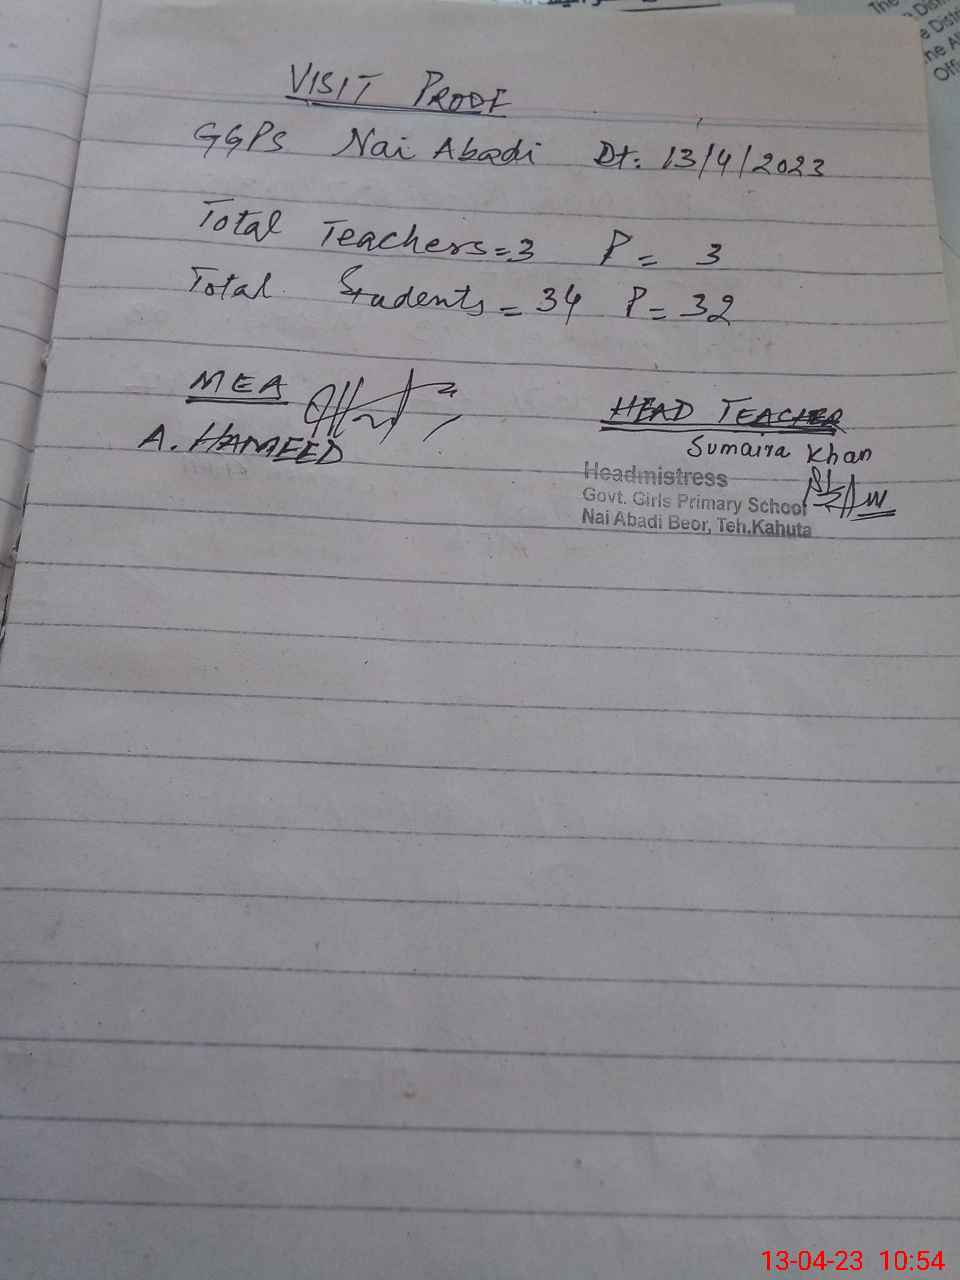 VISIT PROOF
GGPS Nai Abadi Dt: 13/4/2023
Total Teachers = 3 P = 3
Total Students = 34 P = 32
MEA
A. HAMEED
HEAD TEACHER
Sumaira Khan
Headmistress
Govt. Girls Primary School
Nai Abadi Beor, Teh.Kahuta
The
Offi
13-04-23 10:54